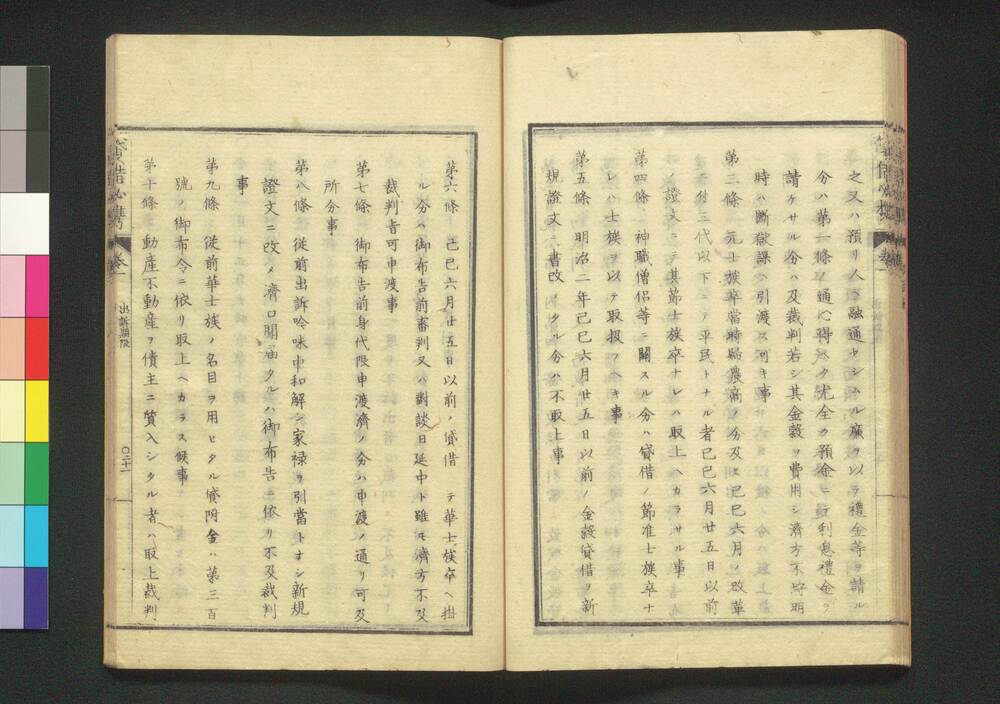 之又ハ預リ人ヘ融通セシムル廣ヲ以テ禮金等ヲ請ル
分ハ第一條ノ通心得ヘク尤全ク預金ニテ利息禮金ヲ
請ケサル分ハ及裁判若シ其金穀ヲ費用シ濟方不埒明
時ハ斷獄課ヘ引渡ス可キ事
第三條 元士族卒當時歸農商ノ分及ヒ己巳六月ノ改革
付三代以下ニテ平民トナル者己巳六月廿五日以前
ノ證文ニテ其節士族卒ナレハ取上ヘカラサル事
第四條 神職僧侶等ニ關スル分ハ貸借ノ節准士族卒ナ
レハ士族ヲ以テ取扱フヘキ事
第五條 明治二年己巳六月廿五日以前ノ金穀貸借ヲ新
規證文ニ書改メタル分ハ不取上事
第六條 己巳六月廿五日以前ノ貸借ニテ華士族卒ヘ掛
ル分ハ御布告前審判又ハ對談日延中ト雖モ濟方不及
裁判旨可申渡事
第七條 御布告前身代限申渡濟ノ分ハ申渡ノ通リ可及
所分事
第八條 從前出訴吟味中和解シ家祿ヲ引當トナシ新規
證文ニ改メ濟口聞届タルハ御布告ニ依リ不及裁判
事
第九條 從前華士族ノ名目ヲ用ヒタル貸附金ハ第三百
號ノ御布令ニ依リ取上ヘカラス候事
第十條 動産不動産ヲ債主ニ質入シタル者ハ取上裁判
貸借必携
卷一
出訴期限
〇二十一